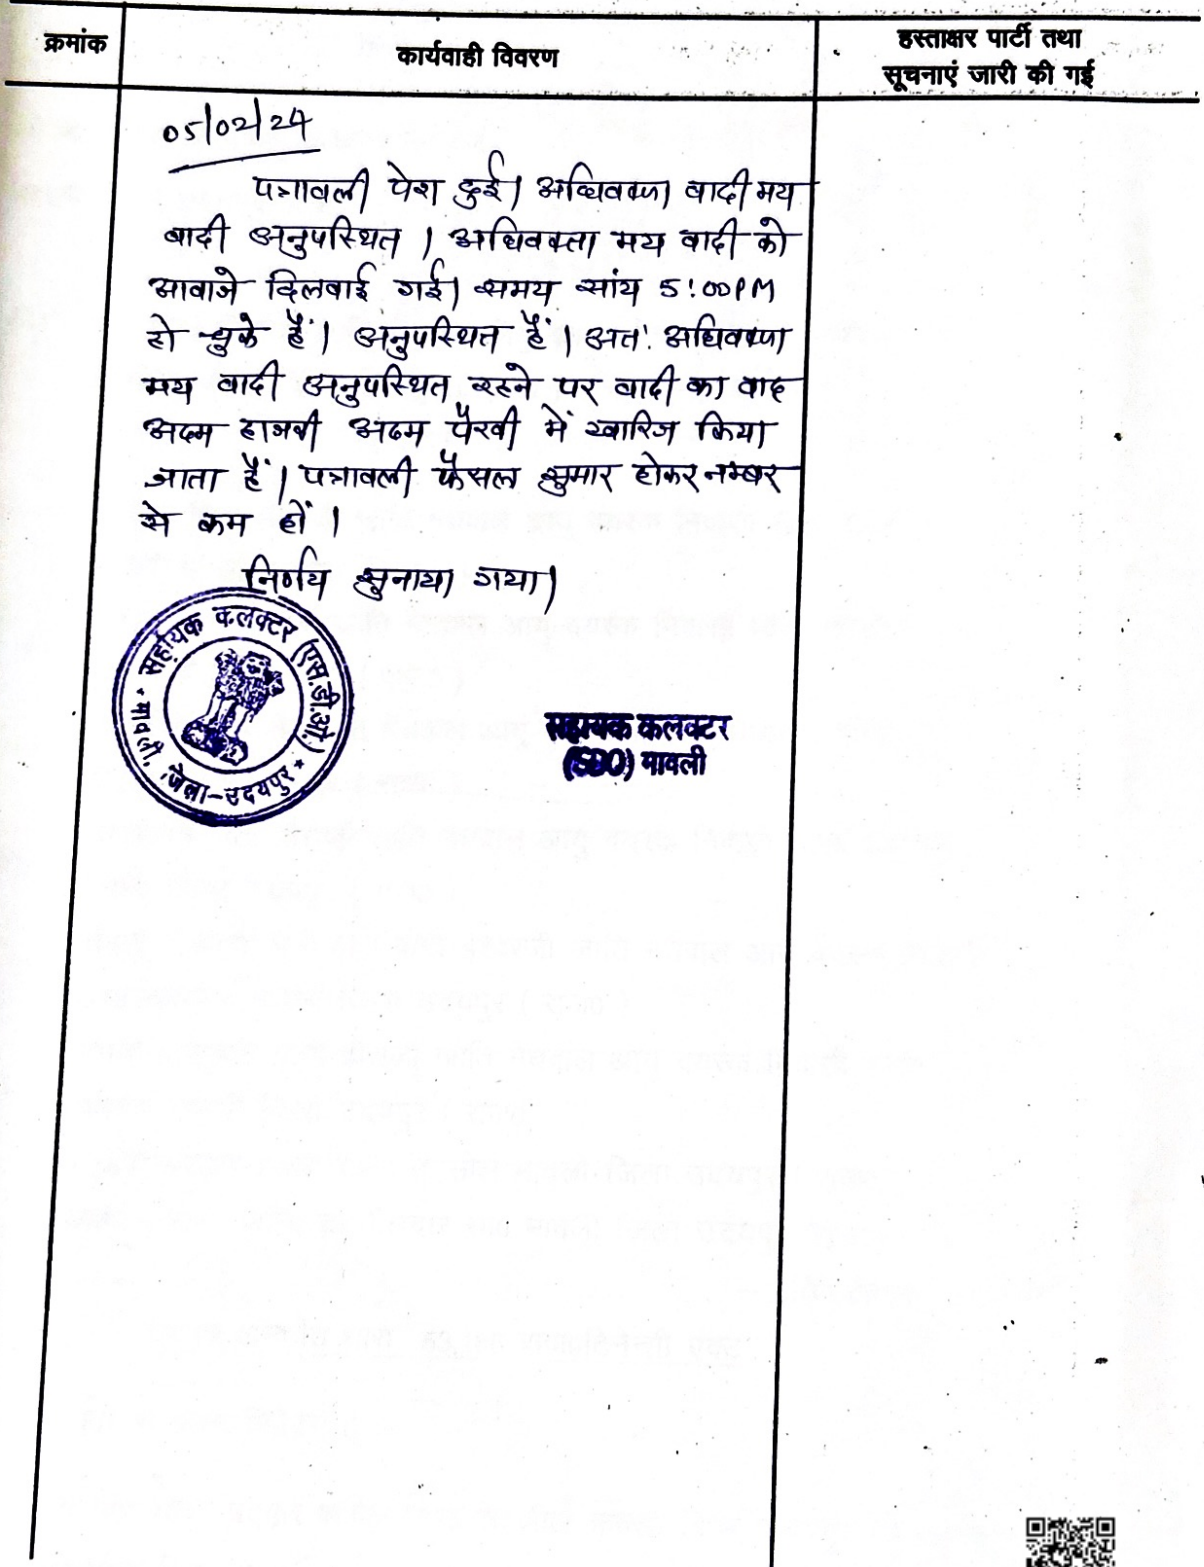 क्रमांक
कार्यवाही विवरण
हस्ताक्षर पार्टी तथा
सूचनाएं जारी की गई
05/02/24
पत्रावली पेश हुई। अधिवक्ता वादी मय
वादी अनुपस्थित । अधिवक्ता मय वादी को
आवाजे दिलवाई गई। समय सांय 5:00PM
हो चुके हैं। अनुपस्थित हैं। अतः अधिवक्ता
मय वादी अनुपस्थित रहने पर वादी का वाद
अदम हाजरी अदम पैरवी में खारिज किया
जाता हैं। पत्रावली फैसल शुमार होकर नम्बर
से कम हों ।
निर्णय सुनाया गया।
सहायक कलक्टर (एस.डी.ओ.)
मावली, जिला-उदयपुर
सहायक कलक्टर
(SDO) मावली